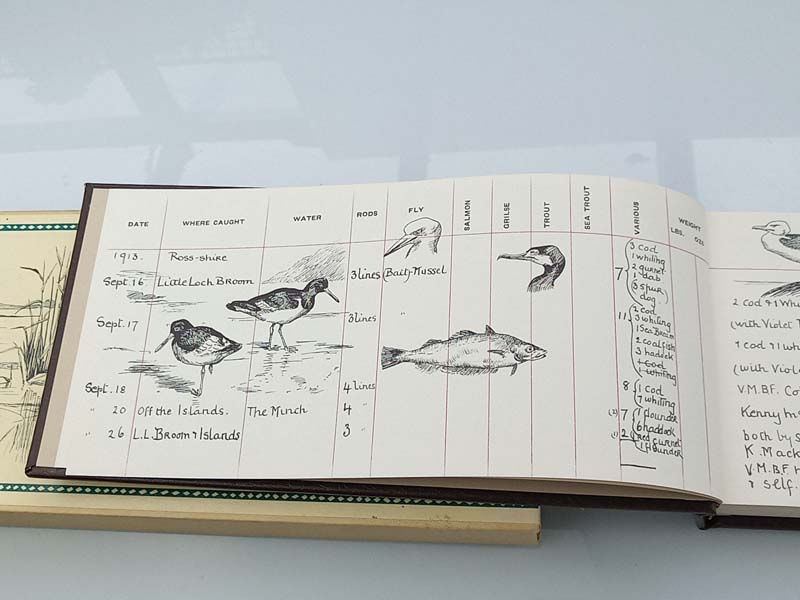 DATE WHERE CAUGHT WATER RODS FLY SALMON GRILSE TROUT SEA TROUT VARIOUS WEIGHT LBS. OZS
1913. Ross-shire
3 cod
1 whiting
2 gurnet
1 dab
Sept. 16 Little Loch Broom 3 lines (Bait)-Mussel 7
3 spur
dog
Sept. 17 3 lines " 11
2 cod
3 whiting
1 Sea Bream
2 coalfish
3 haddock
1 cod
1 whiting
Sept. 18 4 lines 8 1 cod
7 whiting
" 20 Off the Islands. The Minch 4 " (2) 7 1 flounder
6 haddock
" 26 L.L. Broom & Islands 3 " (1) 2 red gurnet
1 flounder
2 cod & 1 Wh
(with Violet
1 cod & 1 wh
(with Viole
V.M.BF. Co
Kenny
both by S
K. Mack
V.M.BF
& self.